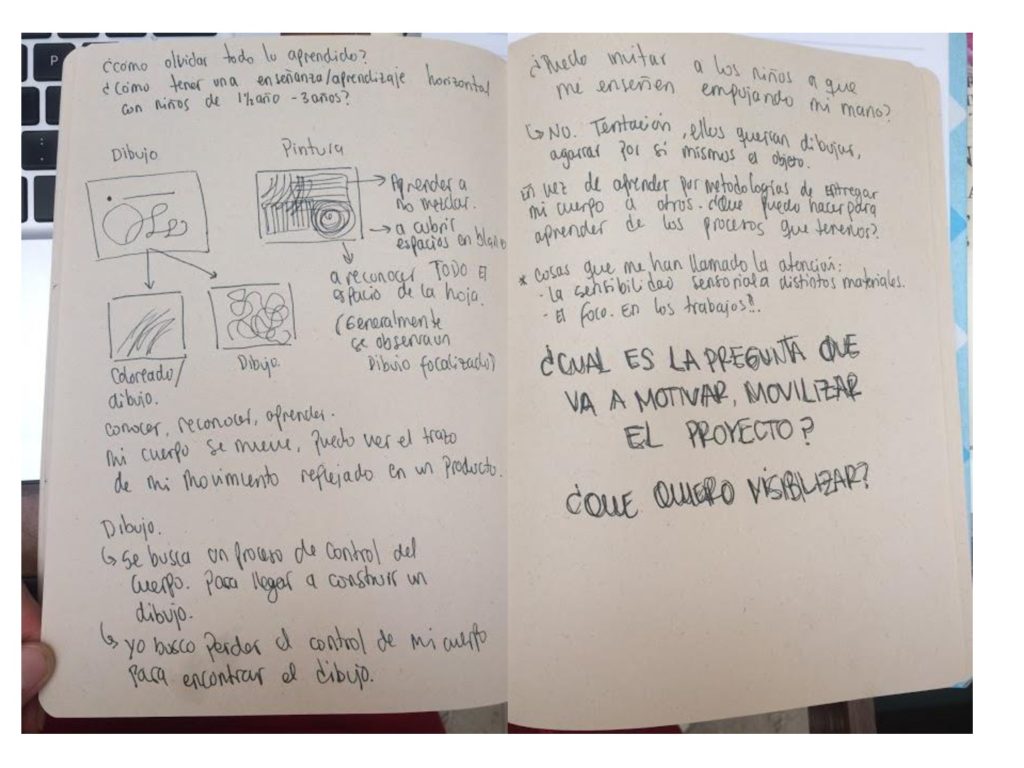 ¿como olvidar todo lo aprendido?
¿Cómo tener una enseñanza/aprendizaje horizontal
con niños de 1½año - 3años?
Dibujo
Pintura
Aprender a
no mezclar.
a cubrir
espacios en blanco
a reconocer TODO El
espacio de la hoja.
(Generalmente
se observa un
Dibujo focalizado)
Coloreado/
dibujo.
Dibujo.
conocer, reconocer, aprender.
Mi cuerpo se mueve, puedo ver el trazo
de mi movimiento reflejado en un producto.
Dibujo.
Se busca un proceso de control del
cuerpo. Para llegar a construir un
dibujo.
yo busco perder el control de mi cuerpo
para encontrar el dibujo.
¿Puedo a los niños a que
me enseñen empujando mi mano?
No. Tentación, ellos querían dibujar,
agarrar por si mismos el objeto.
En vez de aprender por metodologías de entregar
mi cuerpo a otros. ¿Que puedo hacer para
aprender de los procesos que tenemos?
* Cosas que me han llamado la atención:
- La sensibilidad sensorial a distintos materiales.
- El foco. En los trabajos!!.
¿CUAL ES LA PREGUNTA QUE
VA A MOTIVAR, MOVILIZAR
EL PROYECTO?
¿QUE QUIERO VISIBILIZAR?
P